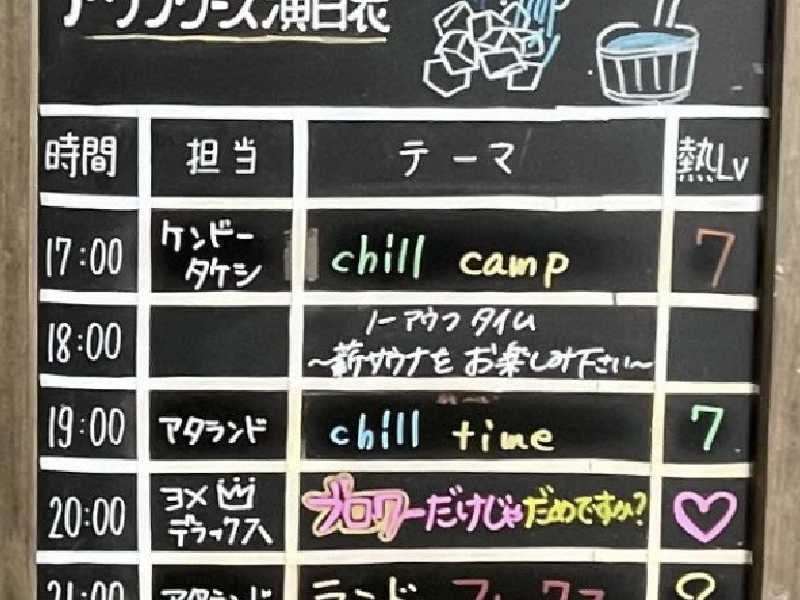 アウフグース演目表
時間 担当 テーマ 熱Lv
17:00 ケンドー
タケシ chill camp 7
18:00 ノーアウフタイム
～薪サウナをお楽しみ下さい～
19:00 アタランド chill time 7
20:00 ヨメ
デラックス ブロワーだけじゃだめですか?
21:00 アタランド ランド